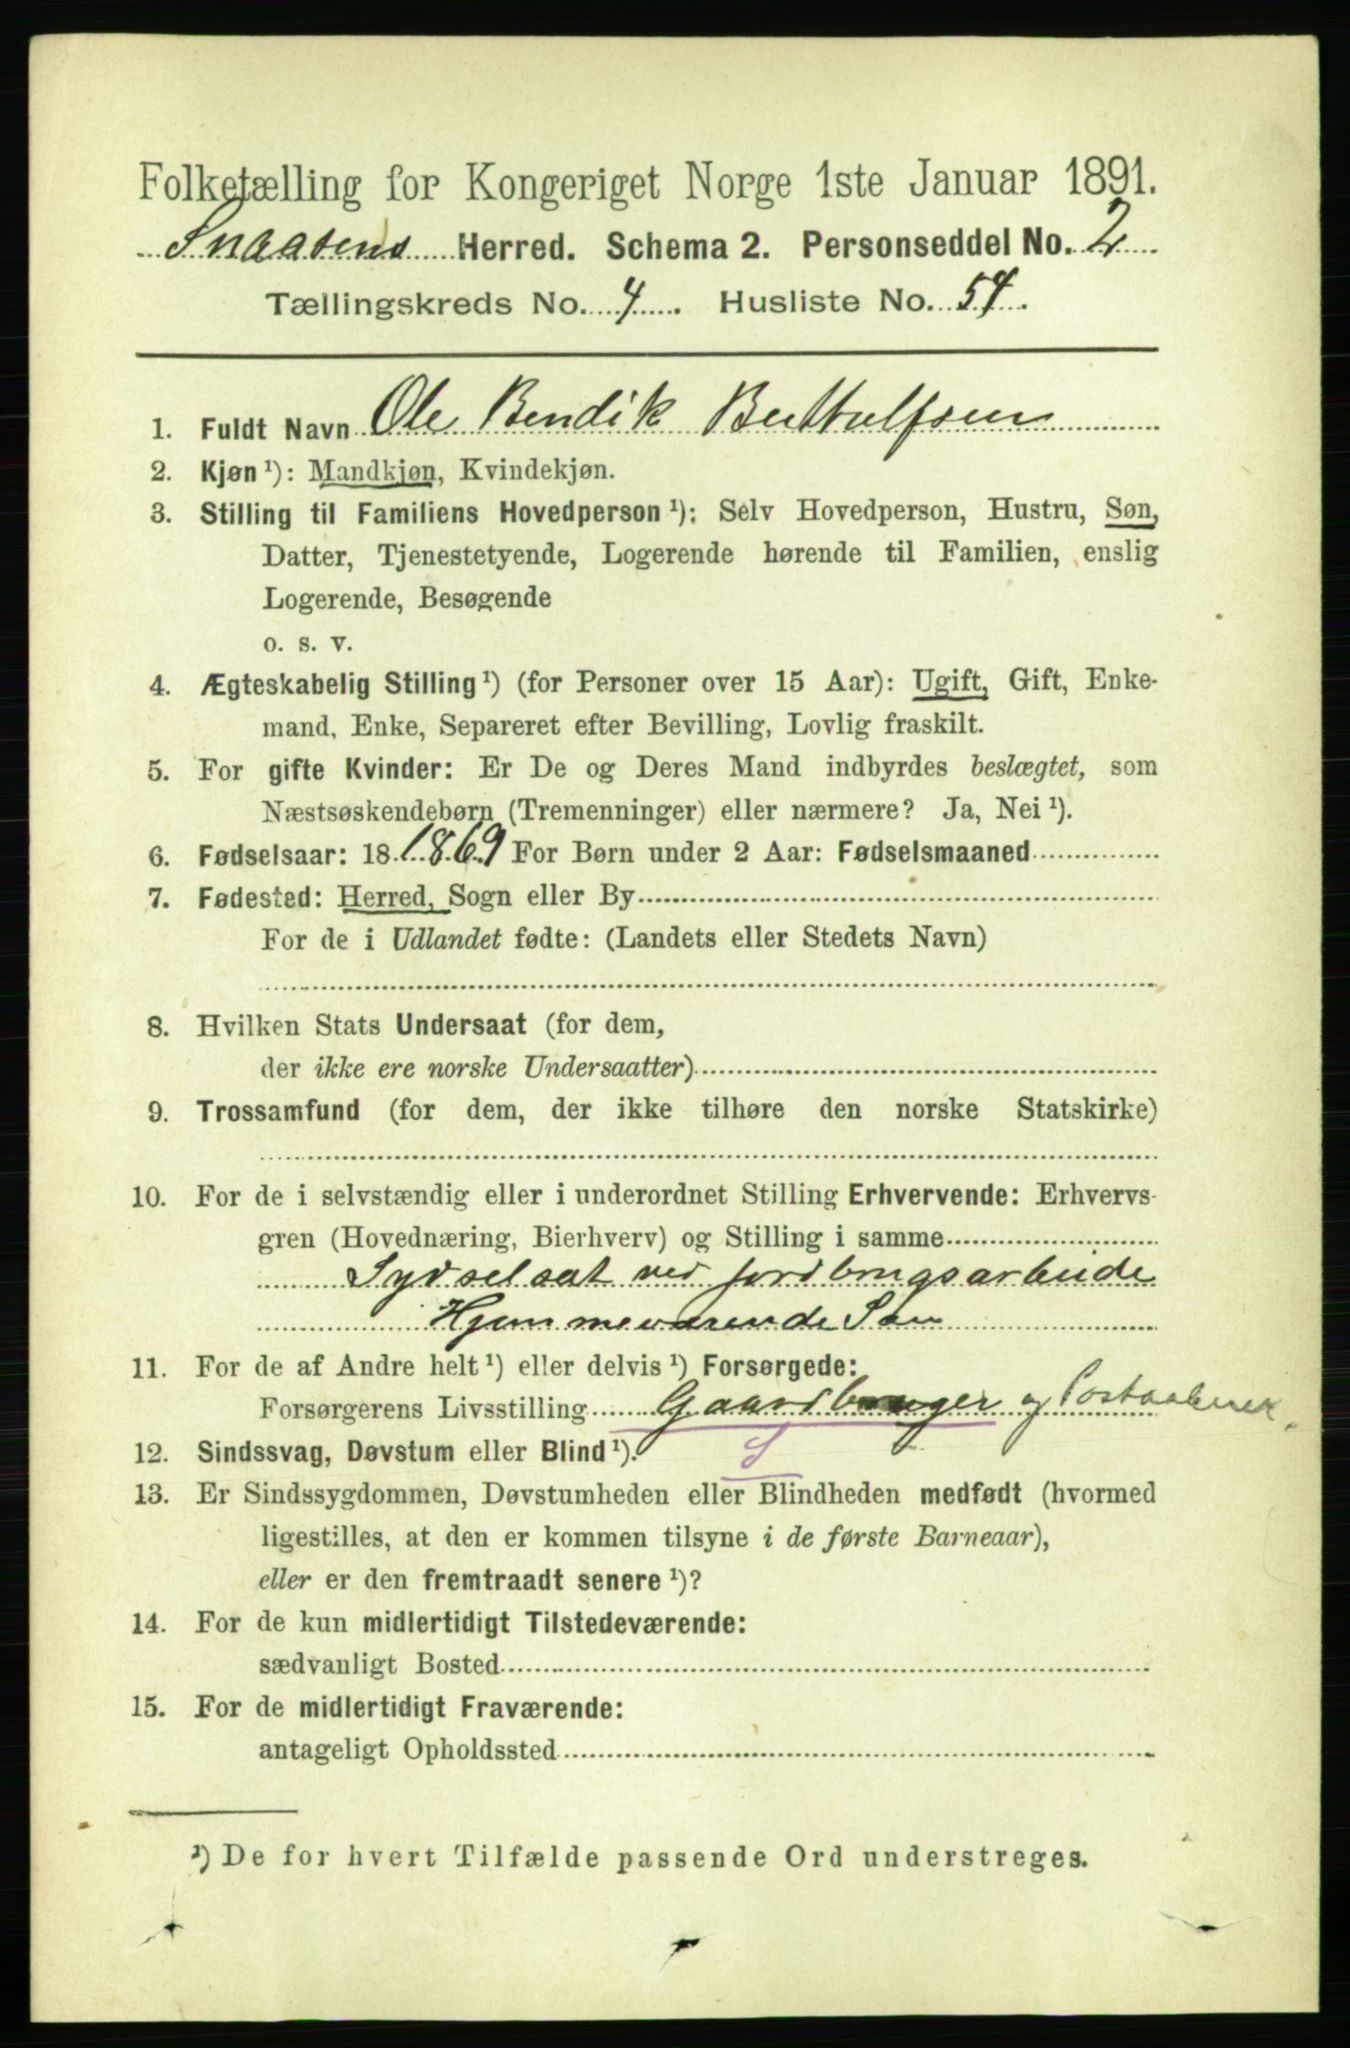 Folketælling for Kongeriget Norge 1ste Januar 1891.
Snaasens Herred. Schema 2. Personseddel No. 2
Tællingskreds No. 4. Husliste No. 54.
1. Fuldt Navn Ole Bendik Buttulfsen
2. Kjøn ¹): Mandkjøn, Kvindekjøn.
3. Stilling til Familiens Hovedperson ¹): Selv Hovedperson, Hustru, Søn,
Datter, Tjenestetyende, Logerende hørende til Familien, enslig
Logerende, Besøgende
o. s. v.
4. Ægteskabelig Stilling ¹) (for Personer over 15 Aar): Ugift, Gift, Enke-
mand, Enke, Separeret efter Bevilling, Lovlig fraskilt.
5. For gifte Kvinder: Er De og Deres Mand indbyrdes beslægtet, som
Næstsøskendebørn (Tremenninger) eller nærmere? Ja, Nei ¹).
6. Fødselsaar: 18 1869 For Børn under 2 Aar: Fødselsmaaned
7. Fødested: Herred, Sogn eller By
For de i Udlandet fødte: (Landets eller Stedets Navn)
8. Hvilken Stats Undersaat (for dem,
der ikke ere norske Undersaatter)
9. Trossamfund (for dem, der ikke tilhøre den norske Statskirke)
10. For de i selvstændig eller i underordnet Stilling Erhvervende: Erhvervs-
gren (Hovednæring, Bierhverv) og Stilling i samme
Sysselsat ved jordbrugsarbeide
Hjemmeværende Søn
11. For de af Andre helt ¹) eller delvis ¹) Forsørgede:
Forsørgerens Livsstilling Gaardbruger og Postaabner.
12. Sindssvag, Døvstum eller Blind ¹).
13. Er Sindssygdommen, Døvstumheden eller Blindheden medfødt (hvormed
ligestilles, at den er kommen tilsyne i de første Barneaar),
eller er den fremtraadt senere ¹)?
14. For de kun midlertidigt Tilstedeværende:
sædvanligt Bosted
15. For de midlertidigt Fraværende:
antageligt Opholdssted
¹) De for hvert Tilfælde passende Ord understreges.